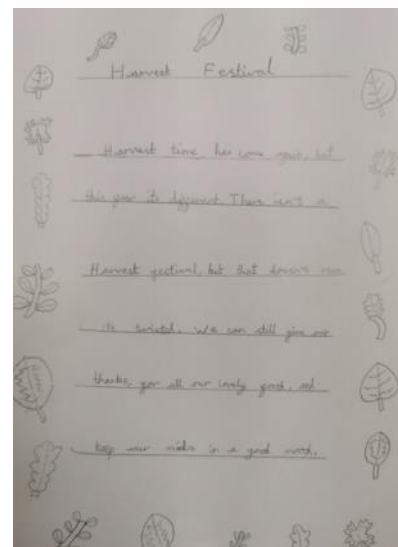 Harvest Festival
Harvest time has come again, but
this year its different. There isn't a
Harvest festival, but that doesn't mean
its We can still give our
thanks, for all our lovely food, and
keep your minds in a good